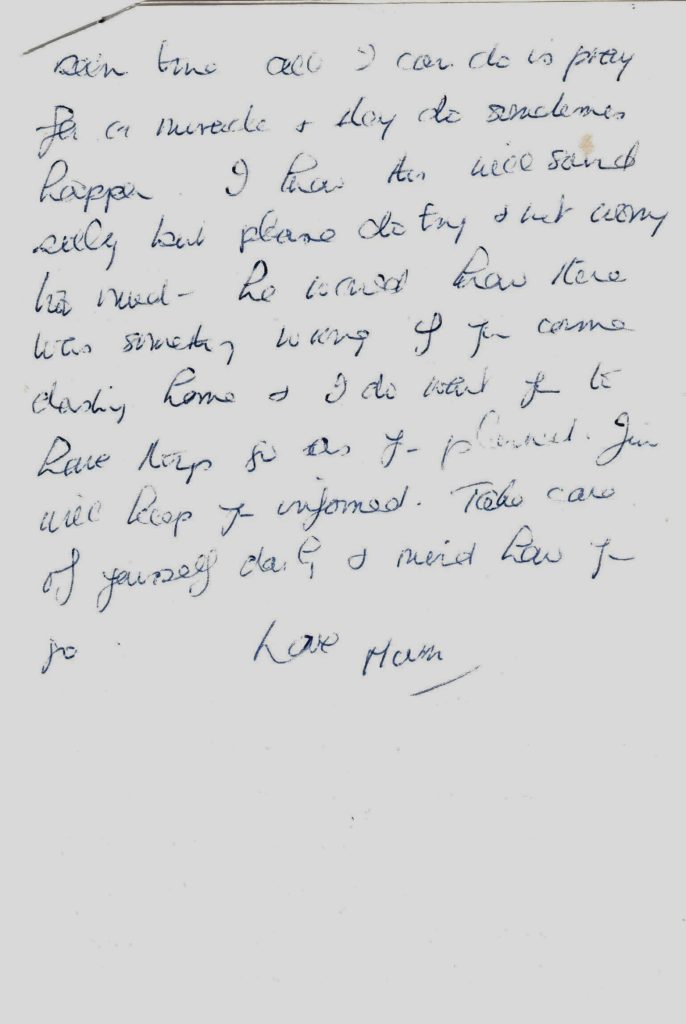 time all I can do is pray
for a miracle & they do sometimes
happen. I know this will sound
silly but please do try & not worry
his mind - he would know there
was something wrong if you come
dashing home & I do want you to
have things go as you planned. Jim
will keep you informed. Take care
of yourself & mind how you
go. Love Mum